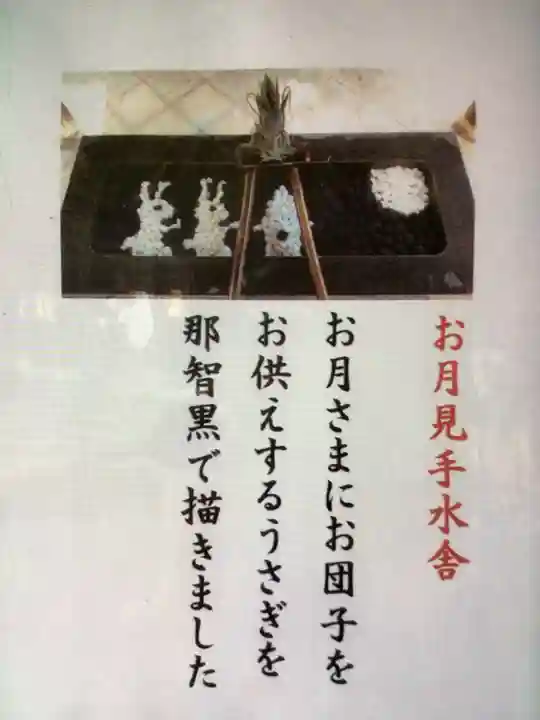 お月見手水舎
お月さまにお団子を
お供えするうさぎを
那智黒で描きました